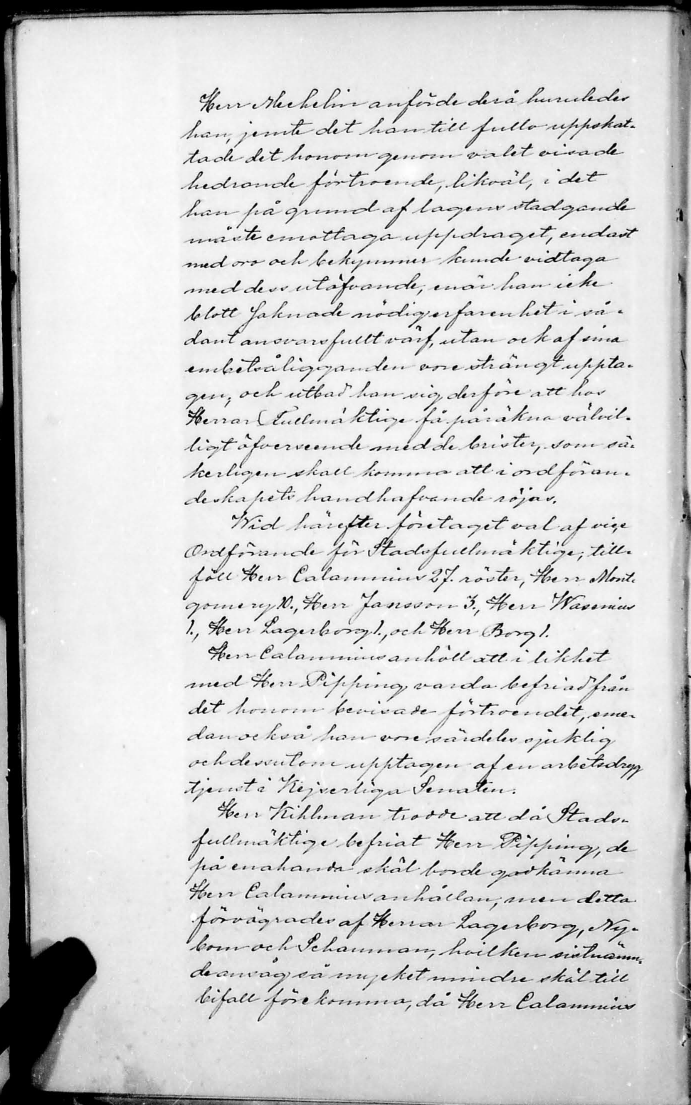 Herr Mechelin anförde derå huruledes
han, jemte det han till fullo uppskat-
tade det honom genom valet visade
hedrande förtroende, likväl, i det
han på grund af lagens stadgande
måste emottaga uppdraget, endast
med oro och bekymmer kunde vidtaga
med dess utöfvande, enär han icke
blott saknade nödig erfarenhet i så-
dant ansvarsfullt värf, utan ock af sina
embetsåligganden vore strängt uppta-
gen, och utbad han sig derföre att hos
Herrar Fullmäktige få påräkna välvil-
ligt öfverseende med de brister, som sä-
kerligen skall komma att i ordföran-
deskapets handhafvande röjas.
Wid härefter företaget val af vice
Ordförande för Stadsfullmäktige, till-
föll Herr Calamnius 27. röster, Herr Mont-
gomery 10., Herr Jansson 3., Herr Wasenius
1., Herr Lagerborg 1., och Herr Borg 1.
Herr Calamnius anhöll att i likhet
med Herr Pipping varda befriad från
det honom bevisade förtroendet, eme-
dan också han vore särdeles sjuklig
och dessutom upptagen af en arbetsdryg
tjenst i Kejserliga Senaten.
Herr Kihlman trodde att då Stads-
fullmäktige befriat Herr Pipping, de
på enahanda skäl borde godkänna
Herr Calamnius anhållan, men detta
förvägrades af Herrar Lagerborg, Ny-
bom och Schauman, hvilken sistnämn-
de ansåg så mycket mindre skäl till
bifall förekomma, då Herr Calamnius